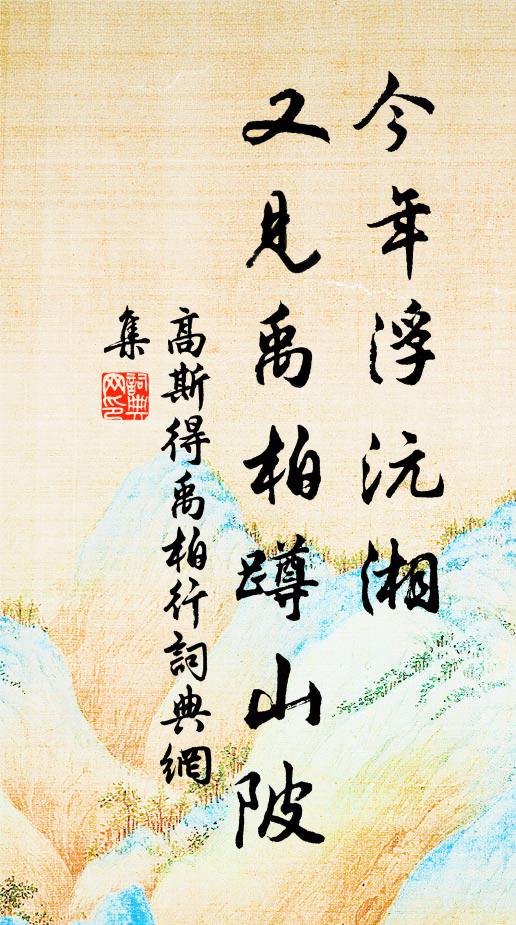 今年浮沅湘
又見禹柏蹲山陂
高斯得禹柏行詞典網
集
詞典
网印